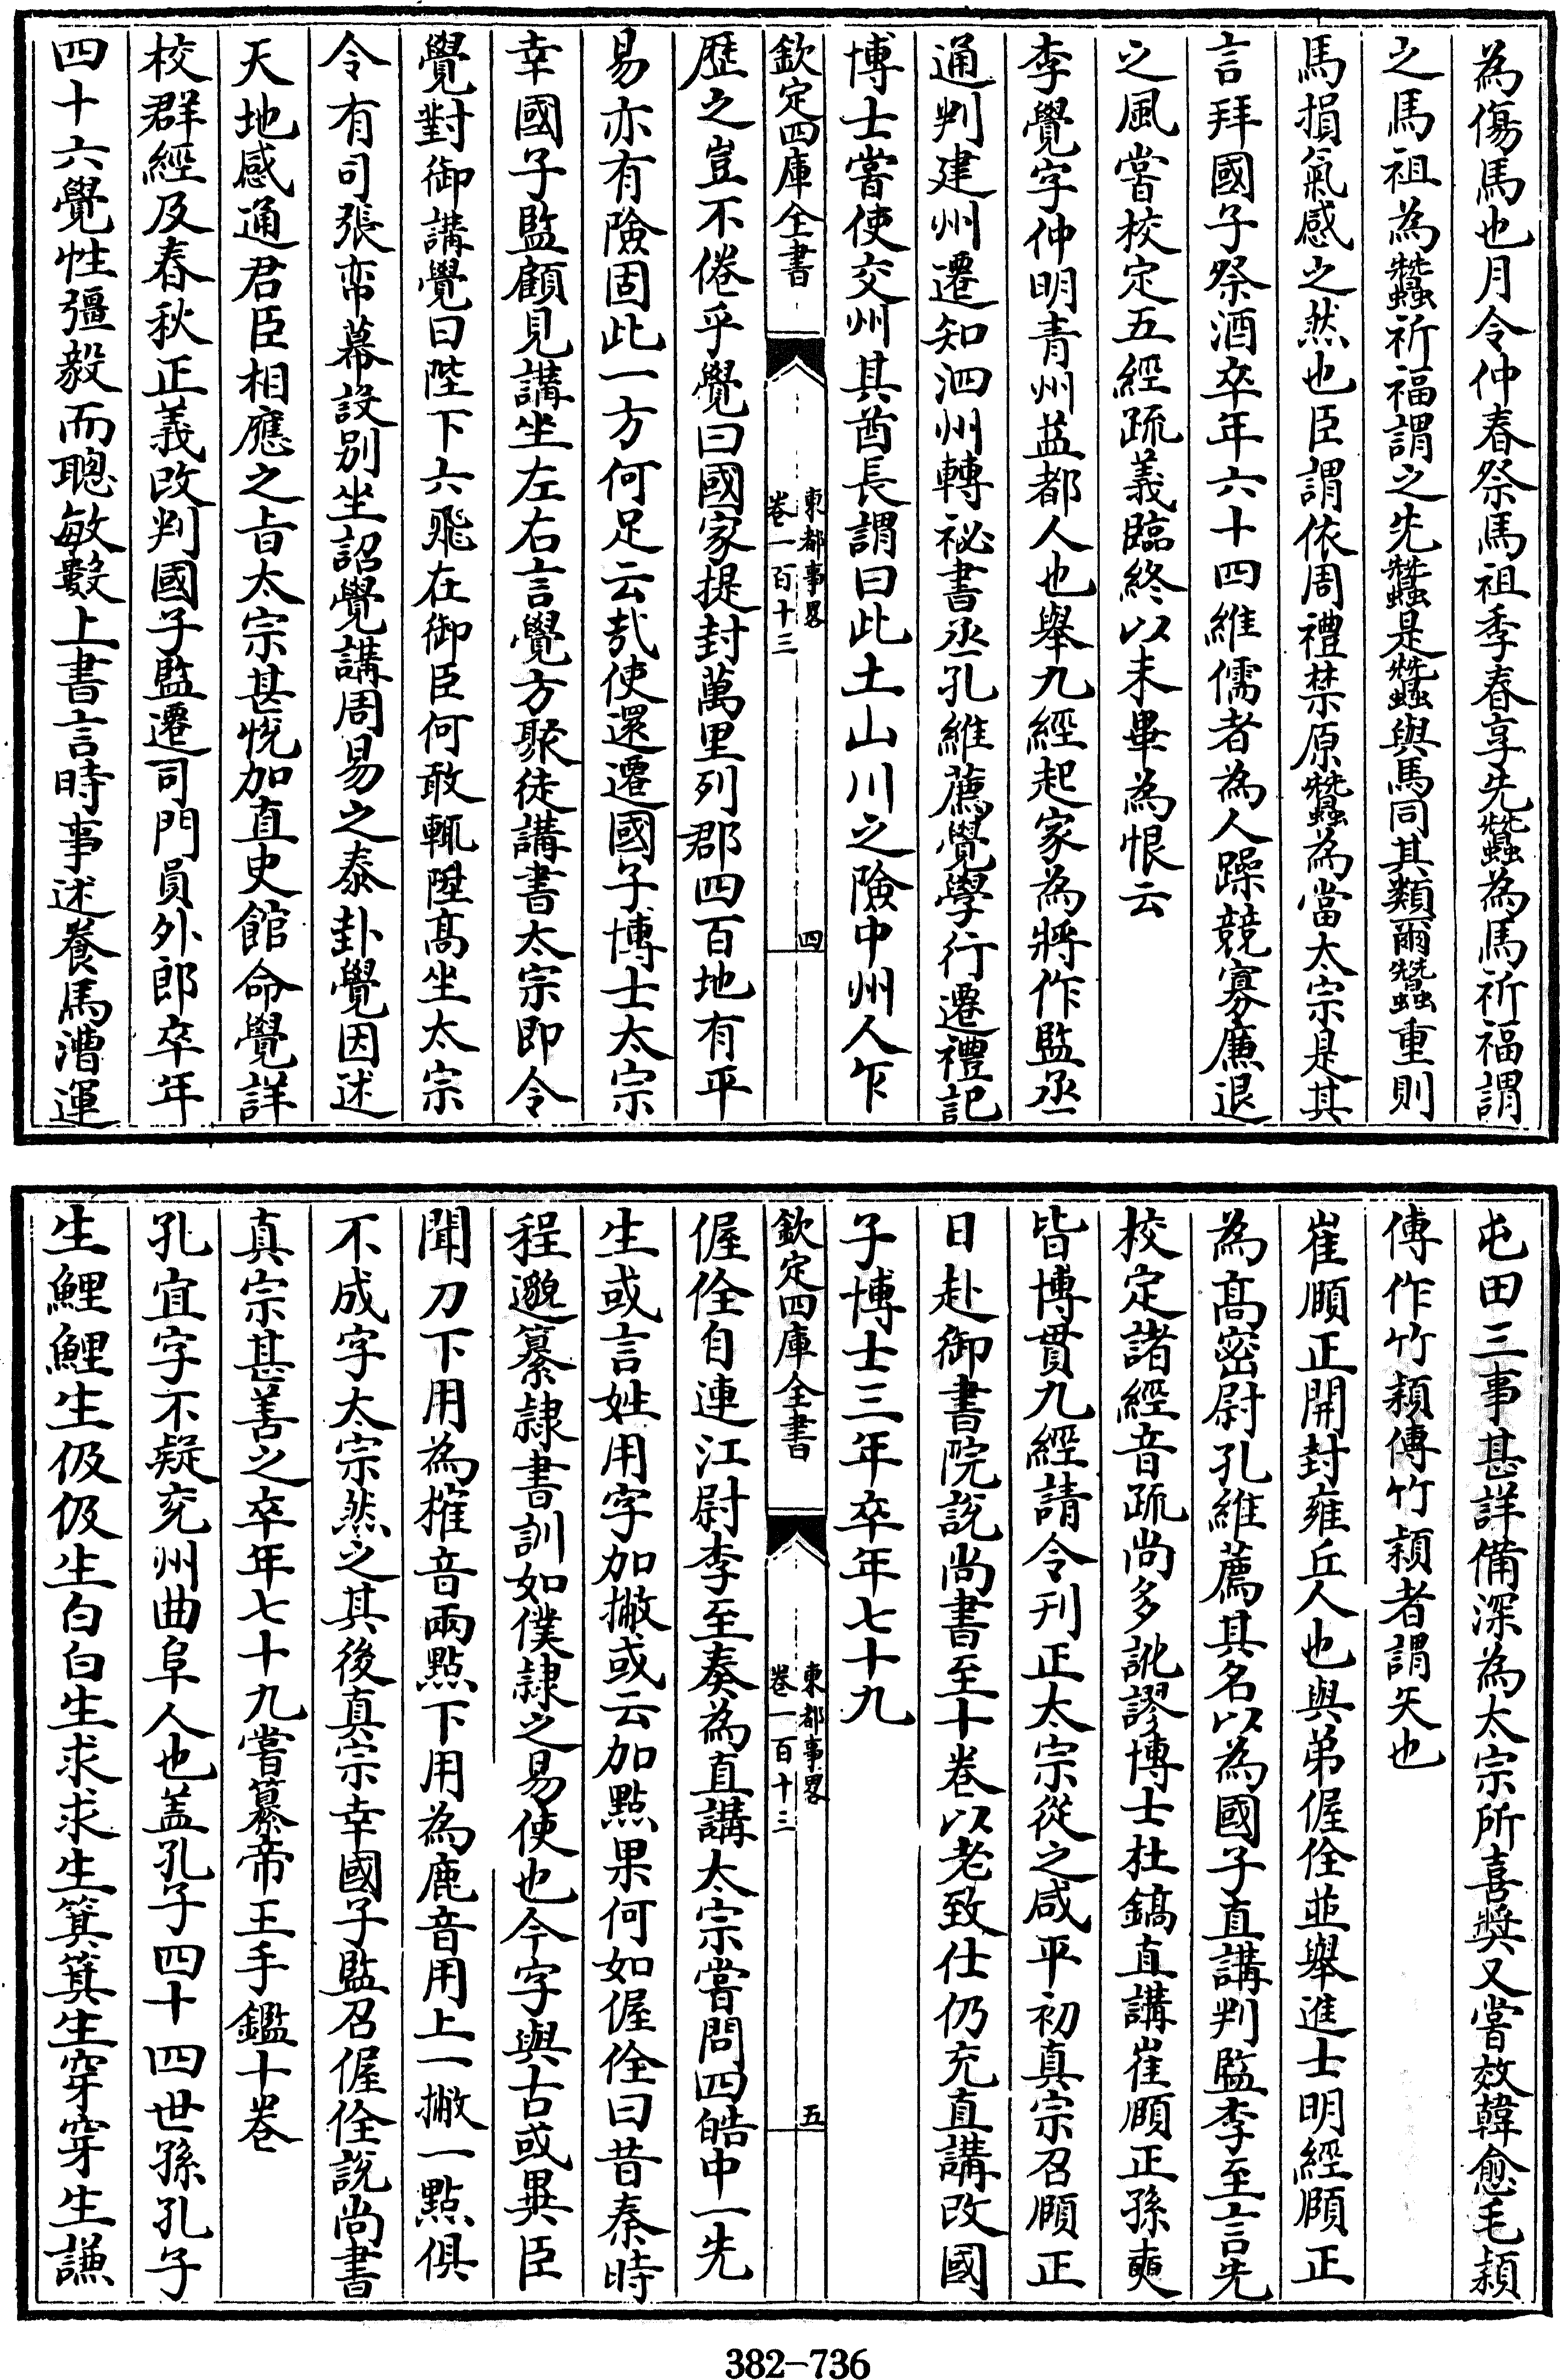 為傷馬也月令仲春祭馬祖季春享先蠶為馬祈福謂
之馬祖為蠶祈福謂之先蠶是蠶與馬同其類爾蠶重則
馬損氣感之然也臣謂依周禮禁原蠶為當太宗是其
言拜國子祭酒卒年六十四維儒者為人躁競寡廉退
之風嘗校定五經疏義臨終以未畢為恨云
李覺字仲明青州益都人也舉九經起家為將作監丞
通判建州遷知泗州轉祕書丞孔維薦覺學行遷禮記
博士嘗使交州其酋長謂曰此土山川之險中州人乍
欽定四庫全書
東都事畧
卷一百十三
四
歴之豈不倦乎覺曰國家提封萬里列郡四百地有平
易亦有險固此一方何足云哉使還遷國子博士太宗
幸國子監顧見講坐左右言覺方聚徒講書太宗即令
覺對御講覺曰陛下六飛在御臣何敢輒陞髙坐太宗
令有司張帟幕設別坐詔覺講周易之泰卦覺因述
天地感通君臣相應之旨太宗甚悅加直史館命覺詳
校群經及春秋正義改判國子監遷司門員外郎卒年
四十六覺性彊毅而聰敏數上書言時事述養馬漕運
屯田三事甚詳備深為太宗所喜奬又嘗效韓愈毛穎
傳作竹穎傳竹穎者謂矢也
崔頤正開封雍丘人也與弟偓佺並舉進士明經頤正
為髙密尉孔維薦其名以為國子直講判監李至言先
校定諸經音疏尚多訛謬博士杜鎬直講崔頤正孫奭
皆博貫九經請令刋正太宗從之咸平初真宗召頤正
日赴御書院說尚書至十卷以老致仕仍充直講改國
子博士三年卒年七十九
欽定四庫全書
東都事畧
卷一百十三
五
偓佺自連江尉李至奏為直講太宗嘗問四皓中一先
生或言姓用字加撇或云加點果何如偓佺曰昔秦時
程邈纂隷書訓如僕隷之易使也今字與古或異臣
聞刀下用為搉音兩點下用為鹿音用上一撇一點俱
不成字太宗然之其後真宗幸國子監召偓佺說尚書
真宗甚善之卒年七十九嘗纂帝王手鑑十卷
孔宜字不疑兖州曲阜人也盖孔子四十四世孫孔子
生鯉鯉生伋伋生白白生求求生箕箕生穿穿生謙
382-736